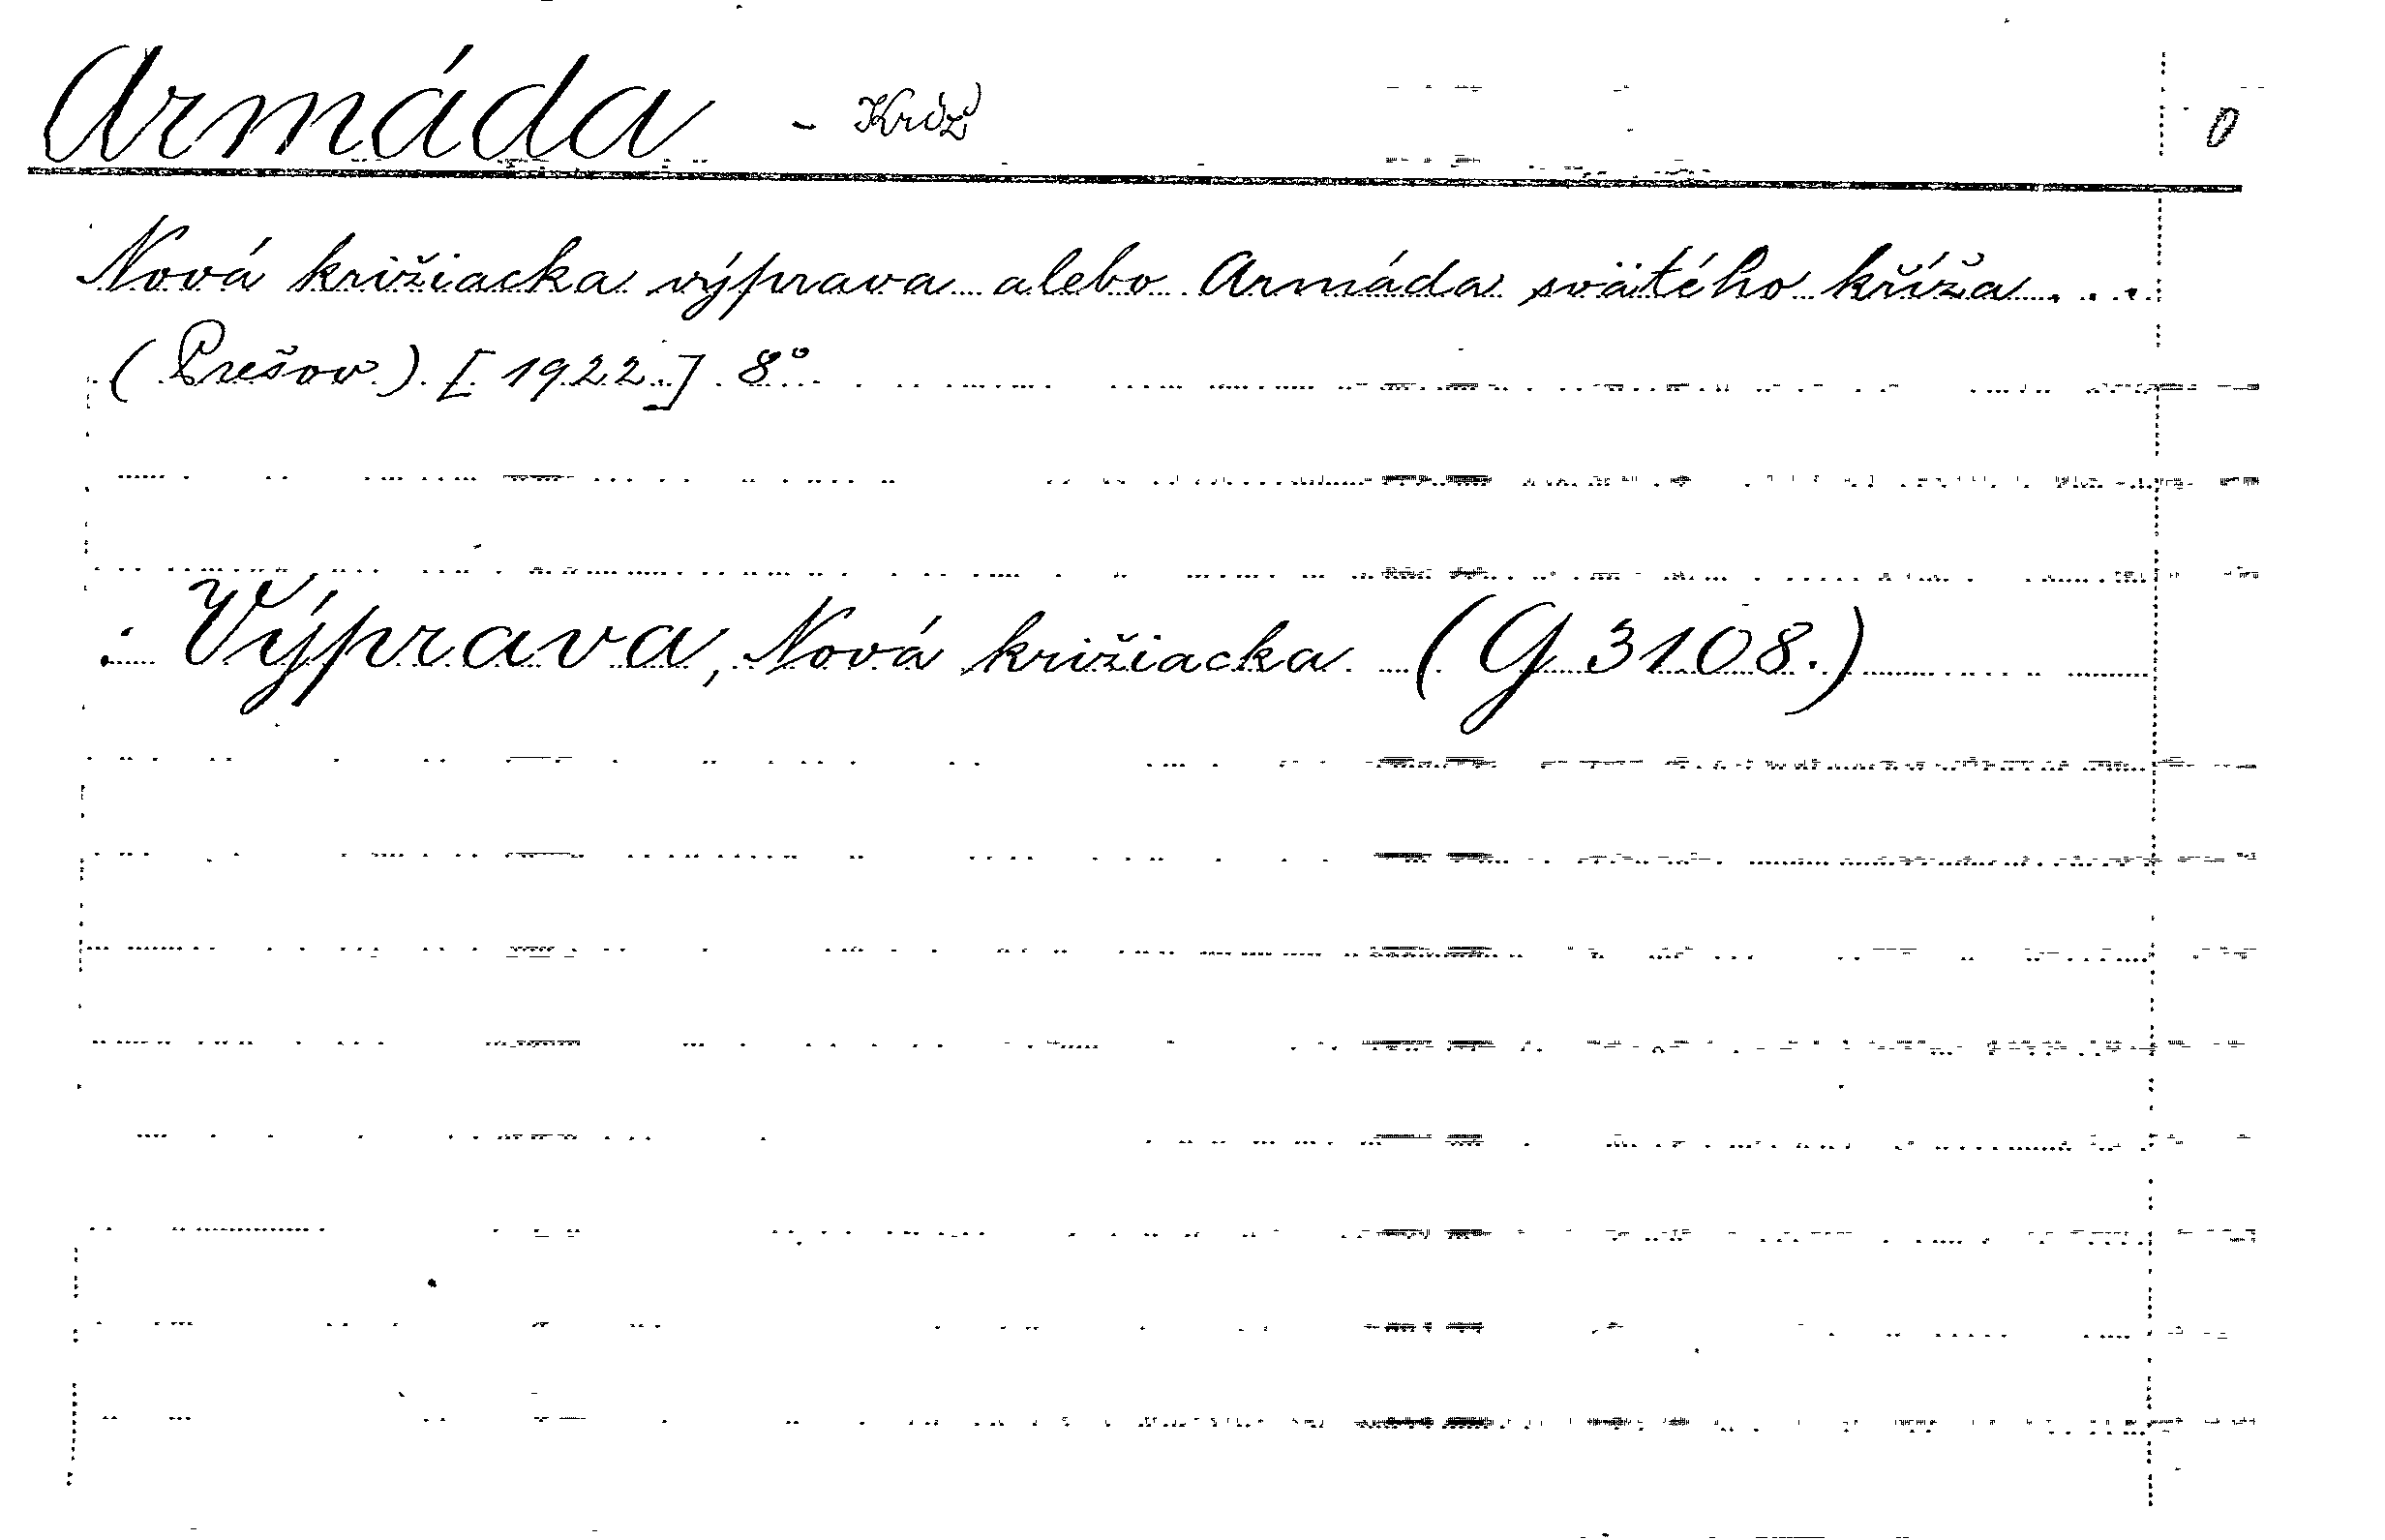 Armáda - Kríž 0
Nová križiacka výprava alebo Armáda svätého kříža...
(Prešov) [1922] 8°
: Výprava, Nová križiacka (G 3108.)